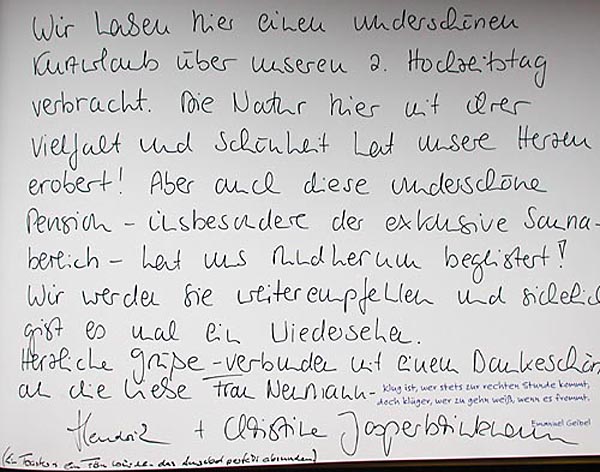 Wir haben hier einen wunderschönen
Kurzurlaub über unseren 2. Hochzeitstag
verbracht. Die Natur hier mit ihrer
Vielfalt und Schönheit hat unsere Herzen
erobert! Aber auch diese wunderschöne
Pension - insbesondere der exklusive Sauna-
bereich - hat uns rundherum begeistert!
Wir werden sie weiterempfehlen und sicherlich
gibt es mal ein Wiedersehen.
Herzliche Grüße - verbunden mit einem Dankeschön
an die liebe Frau Neumann -
Klug ist, wer stets zur rechten Stunde kommt,
doch klüger, wer zu gehn weiß, wenn es frommt.
Emanuel Geibel
Hendrik + Christine